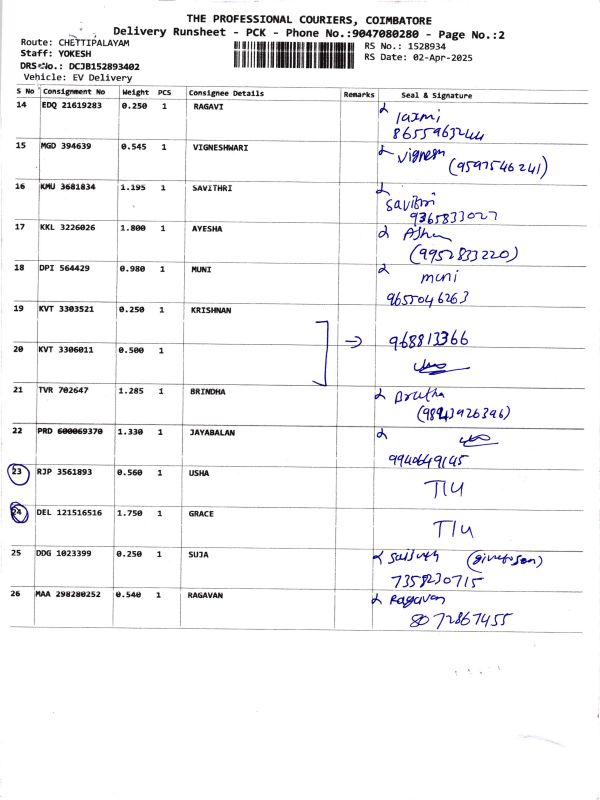 THE PROFESSIONAL COURIERS, COIMBATORE
Delivery Runsheet - PCK - Phone No.:9047080280 - Page No.:2
Route: CHETTIPALAYAM
RS No.: 1528934
Staff: YOKESH
RS Date: 02-Apr-2025
DRS No.: DCJB152893402
Vehicle: EV Delivery
S No Consignment No Weight PCS Consignee Details Remarks Seal & Signature
14 EDQ 21619283 0.250 1 RAGAVI
laxmi
8655963244
15 MGD 394639 0.545 1 VIGNESHWARI
Vignesh
(9597546241)
16 KMU 3681834 1.195 1 SAVITHRI
Savithri
9365833027
17 KKL 3226026 1.800 1 AYESHA
(9952833220)
18 DPI 564429 0.980 1 MUNI
muni
9655046263
19 KVT 3303521 0.250 1 KRISHNAN
→ 968813366
20 KVT 3306011 0.500 1
21 TVR 702647 1.285 1 BRINDHA
(9843926396)
22 PRD 600069370 1.330 1 JAYABALAN
9940649145
23 RJP 3561893 0.560 1 USHA
T/U
24 DEL 121516516 1.750 1 GRACE
T/U
25 DDG 1023399 0.250 1 SUJA
7358230715
26 MAA 298280252 0.540 1 RAGAVAN
Ragavan
8072867455